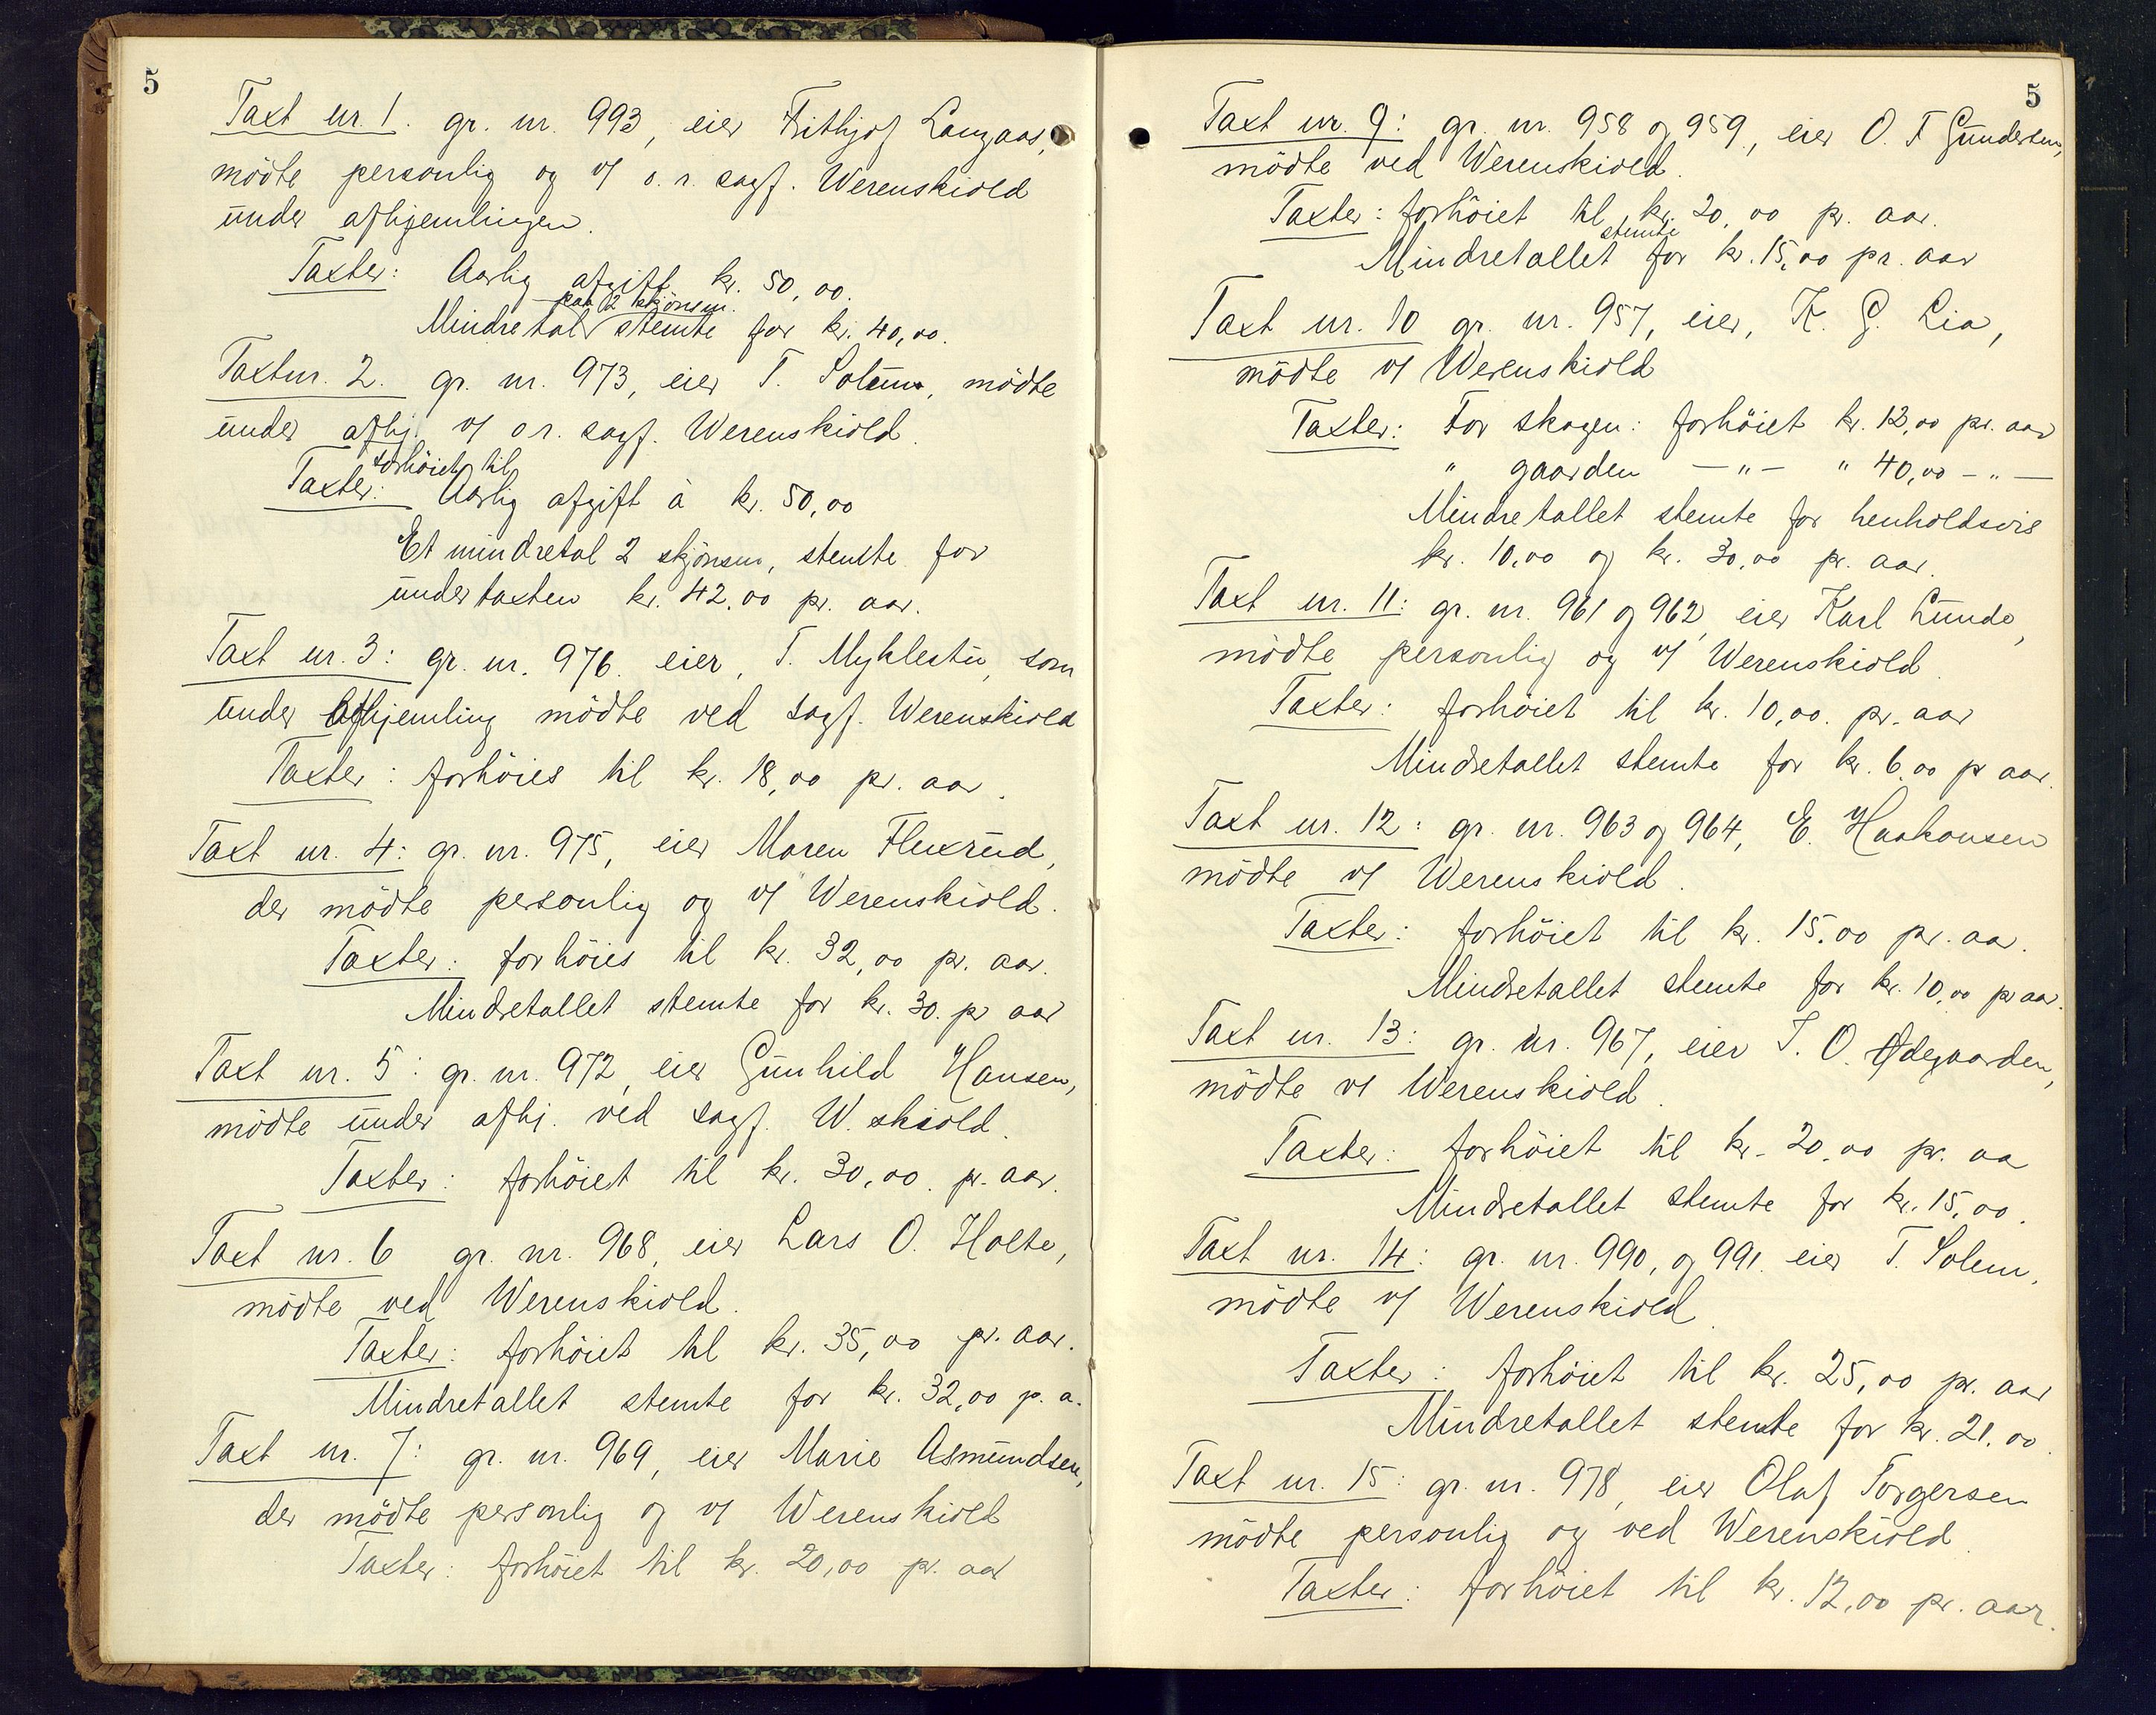 5
Taxt nr. 1. gr. nr. 993, eier Frithjof Langaas,
mödte personlig og v/ o. r. sagf. Werenskiold
under afhjemlingen.
Taxter: Aarlig afgift kr. 50,00.
paa 2 skjönsm.
Mindretal stemte for kr. 40,00.
Taxtnr. 2. gr. nr. 973, eier T. Solum, mödte
under afhj. v/ o r. sagf. Werenskiold.
forhöiet til
Taxter: Aarlig afgift à kr. 50,00
Et mindretal 2 skjönsm, stemte for
undertaxten kr. 42,00 pr. aar.
Taxt nr. 3: gr. nr. 976. eier, T. Myklestu, som
under Afhjemling mödte ved sagf. Werenskiold
Taxter: forhöies til kr. 18,00 pr. aar.
Taxt nr. 4: gr. nr. 975, eier Maren Flexrud,
der mödte personlig og v/ Werenskiold.
Taxter: forhöies til kr. 32,00 pr. aar.
Mindretallet stemte for kr. 30. pr aar
Taxt nr. 5: gr. nr. 972, eier Gunhild Hansen,
mödte under afhj. ved sagf. W. skiold.
Taxter: forhöiet til kr. 30,00. pr. aar.
Taxt nr. 6 gr. nr. 968, eier Lars O. Holte,
mödte ved Werenskiold.
Taxter: forhöiet til kr. 35,00 pr. aar.
Mindretallet stemte for kr. 32,00 p. a.
Taxt nr. 7: gr. nr. 969, eier Marie Asmundsen,
der mödte personlig og v/ Werenskiold
Taxter: forhöiet til kr. 20,00 pr. aar
5
Taxt nr. 9: gr. nr. 958 og 959, eier O. T Gundersen,
mödte ved Werenskiold.
Taxter: forhöiet til kr. 20,00 pr. aar.
stemte
Mindretallet for kr. 15,00 pr. aar
Taxt nr. 10 gr. nr. 957, eier, K. G. Lia,
mödte v/ Werenskiold
Taxter: For skogen: forhöiet kr. 12,00 pr. aar
" gaarden — " — " 40,00 - " —
Mindretallet stemte for henholdsvis
kr. 10,00 og kr. 30,00 pr. aar.
Taxt nr. 11: gr. nr. 961 og 962, eier Karl Lunde,
mödte personlig og v/ Werenskiold.
Taxter: forhöiet til kr. 10,00. pr. aar
Mindretallet stemte for kr. 6,00 pr aar.
Taxt nr. 12: gr. nr. 963 og 964, E. Haakonsen
mödte v/ Werenskiold.
Taxter: forhöiet til kr. 15,00 pr. aar.
Mindretallet stemte for kr. 10,00 pr aar.
Taxt nr. 13: gr. nr. 967, eier T. O. Ødegaarden,
mödte v/ Werenskiold.
Taxter: forhöiet til kr. 20,00 pr. aa
Mindretallet stemte for kr. 15,00.
Taxt nr. 14: gr. nr. 990, og 991. eier T. Solem,
mödte v/ Werenskiold.
Taxter: forhöiet til kr. 25,00 pr. aar
Mindretallet stemte for kr. 21.00.
Taxt nr. 15: gr. nr. 978, eier Olaf Torgersen
mödte personlig og ved Werenskiold.
Taxter: forhöiet til kr. 12,00 pr. aar.